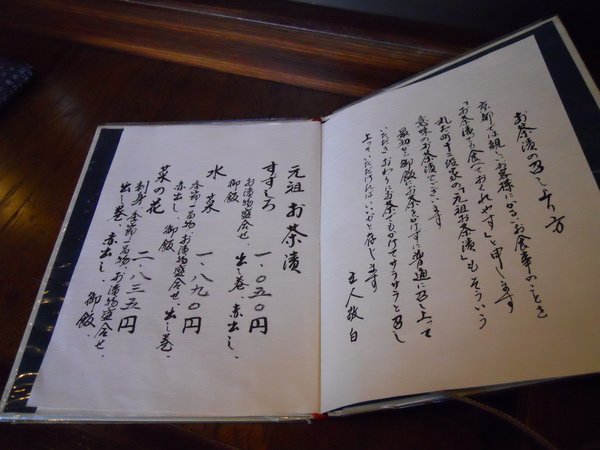 お茶漬の召し上り方
京都では親しいお客様にかるいお食事のことを
「お茶漬でも食べておくれやす」と申します
丸太町十二段家の「元祖お茶漬」もそういう
意味のお茶漬でございます
最初から御飯にお茶をかけずに普通に召し上って
いただきおかわりにお茶でもかけてサラサラと召し
上っていただければいいかと存じます
主人敬白
元祖 お茶漬
すずしろ 一、〇五〇円
お漬物盛合せ、出し巻、赤出し、
御飯
水菜 一、八九〇円
季節一品物、お漬物盛合せ、出し巻、
赤出し、御飯
菜の花 二、八三五円
刺身、季節一品物、お漬物盛合せ、
出し巻、赤出し、御飯